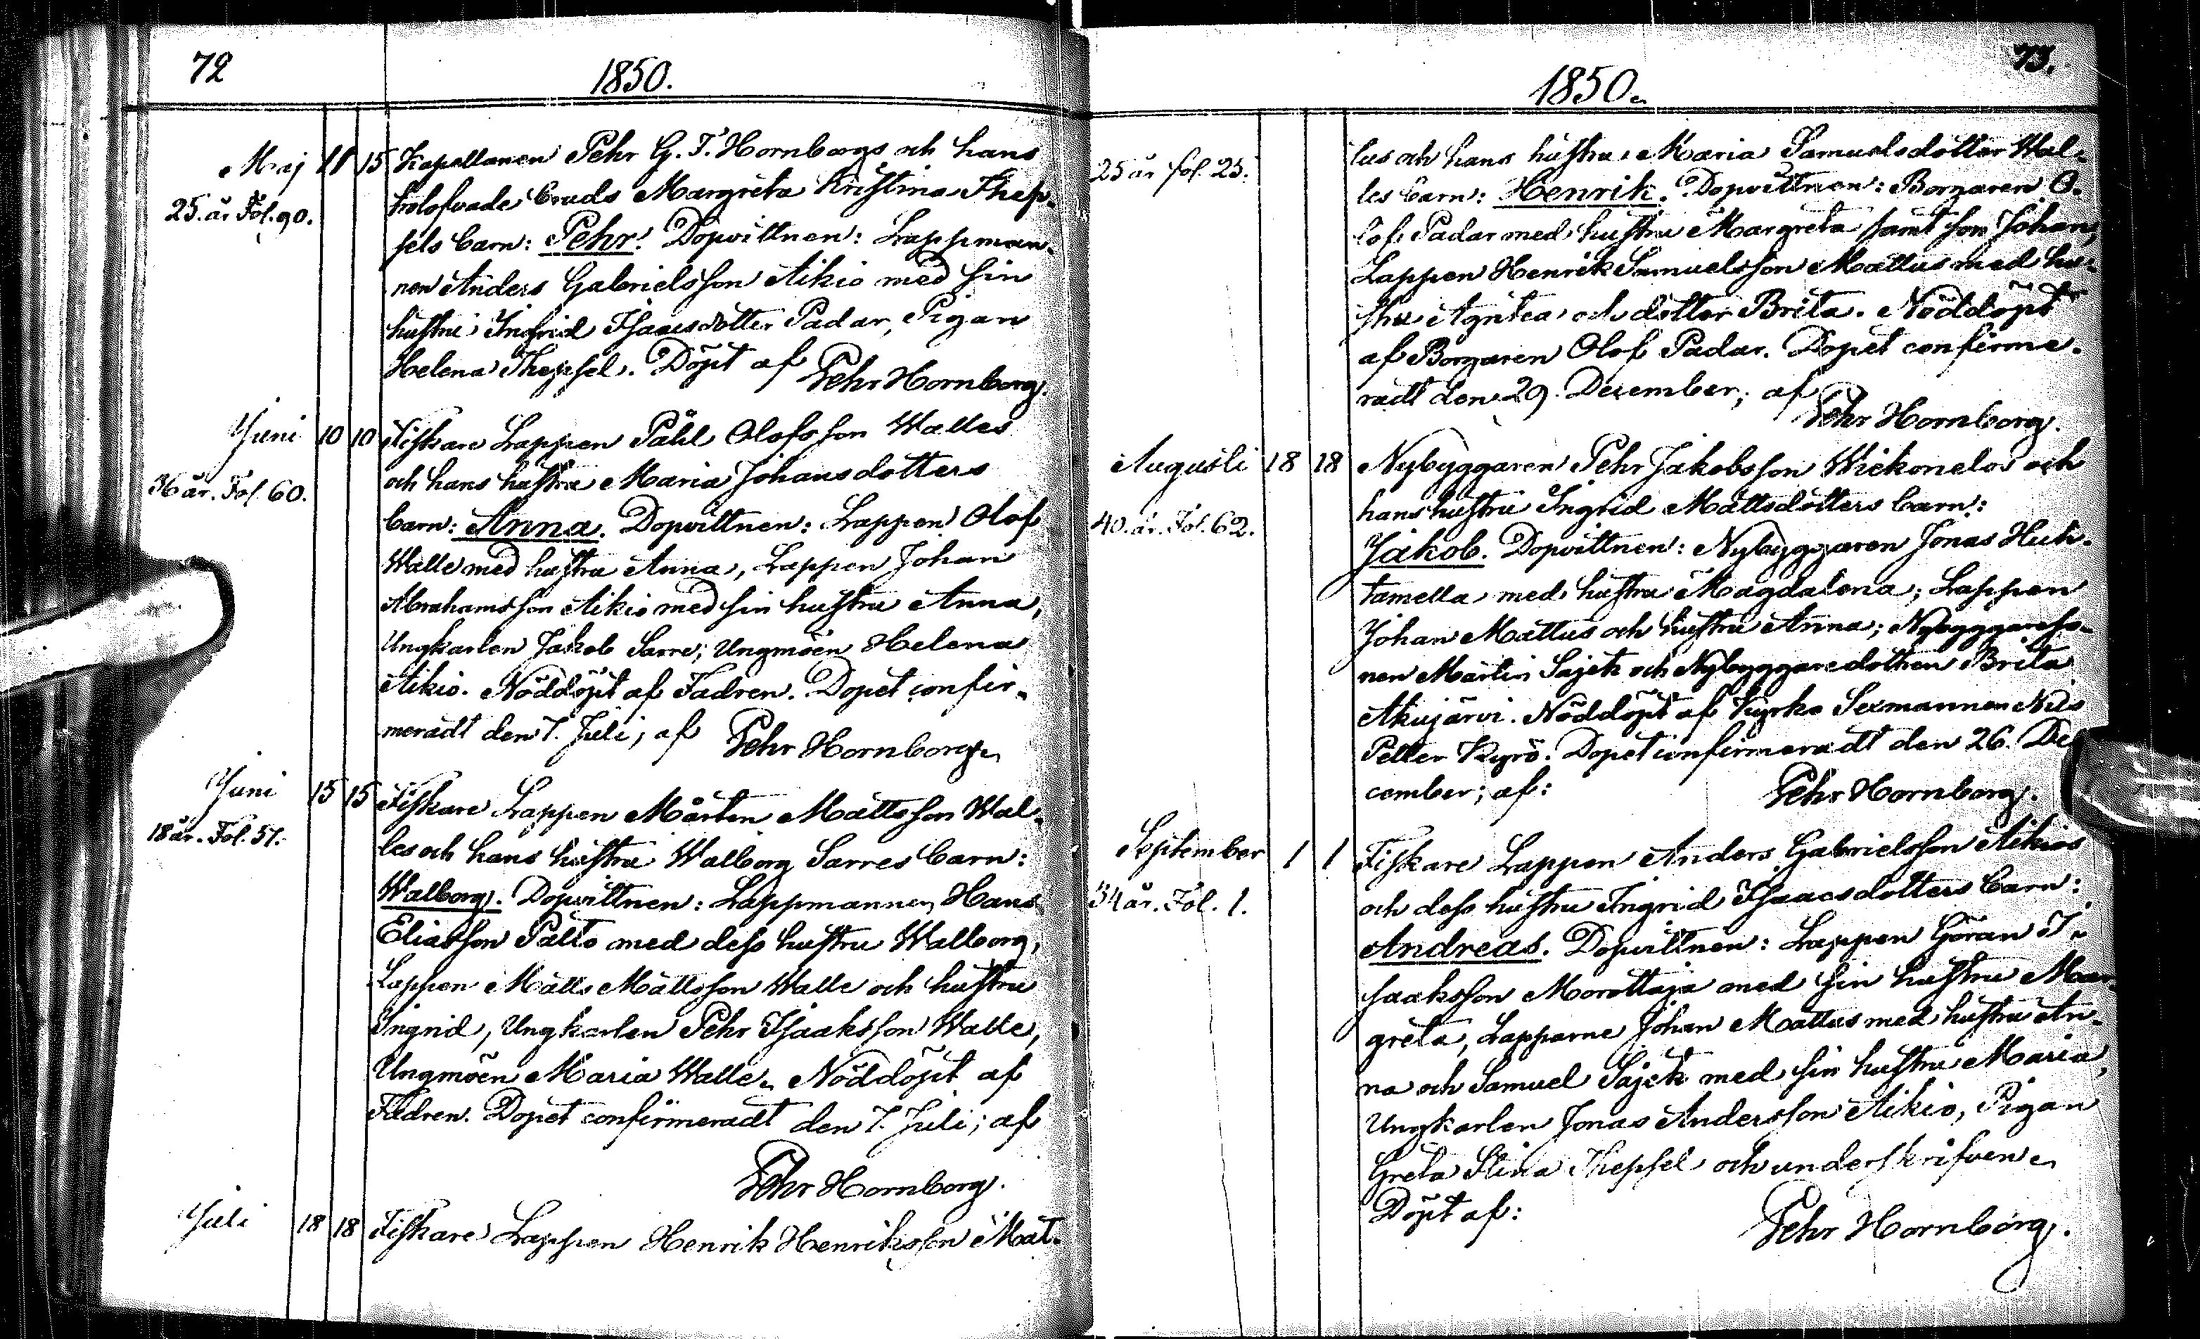 72
1850.
Maj 11 15 Kapellanen Pehr G. T. Hornborgs och hans
25. år Fol. 90.
trolofvade Bruds Margreta Kristina Thep-
sels barn: Pehr. Dopvittnen: Lappman-
nen Anders Gabrielsson Aikio med sin
hustru Ingrid Isaacsdotter Padar, Pigan
Helena Thepsel. Döpt af
Pehr Hornborg.
Juni 10 10 Fiskare Lappen Påhl Olofsson Walles
36 år. Fol. 60.
och hans hustru Maria Johansdotters
barn: Anna. Dopvittnen: Lappen Olof
Walle med hustru Anna, Lappen Johan
Abrahamsson Aikio med sin hustru Anna,
Ungkarlen Jakob Sarre; Ungmöen Helena
Aikio. Nöddöpt af Fadren. Dopet confir-
meradt den 7. Juli; af
Pehr Hornborg.
Juni 15 15 Fiskare Lappen Mårten Mattsson Wal-
18 år. Fol. 51.
les och hans hustru Walborg Sarres barn:
Walborg. Dopvittnen: Lappmannen Hans
Eliasson Palto med dess hustru Walborg,
Lappen Matts Mattsson Walle och hustru
Ingrid, Ungkarlen Pehr Isaaksson Walle,
Ungmöen Maria Walle. Nöddöpt af
Fadren. Dopet confirmeradt den 7. Juli; af
Pehr Hornborg.
Juli 18 18 Fiskare Lappen Henrik Henriksson Mat-
73.
1850.
lus och hans hustru Maria Samuelsdotter Wal-
25 år fol. 25.
les barn: Henrik. Dopvittnen: Borgaren O-
lof Padar med hustru Margreta samt son Johan,
Lappen Henrik Samuelsson Mattus med hu-
stru Agneta och dotter Brita. Nöddöpt
af Borgaren Olof Padar. Dopet confirme-
radt den 29. December; af
Pehr Hornborg.
Augusti 18 18 Nybyggaren Pehr Jakobsson och
40. år. Fol. 62.
hans hustru Ingrid Mattsdotters barn:
Jakob. Dopvittnen: Nybyggaren Jonas Huh-
tamella med hustru Magdalena; Lappen
Johan Mattus och hustru Anna; Nybyggareso-
nen Martin Sajek och Nybyggaredottren Brita
Akujärvi. Nöddöpt af Kyrko Sexmannen Nils
Petter Kyrö. Dopet confirmeradt den 26. De-
cember; af:
Pehr Hornborg.
September 1 1 Fiskare Lappen Anders Gabrielsson Aikios
34 år. Fol. 1.
och dess hustru Ingrid Isaacsdotters barn:
Andreas. Dopvittnen: Lappen Göran I-
saaksson Morottaja med sin hustru Mar-
greta, Lapparne Johan Mattus med hustru An-
na och Samuel Sajek med sin hustru Maria,
Ungkarlen Jonas Andersson Aikio, Pigan
Greta Stina Thepsel och underskrifven.
Döpt af:
Pehr Hornborg.